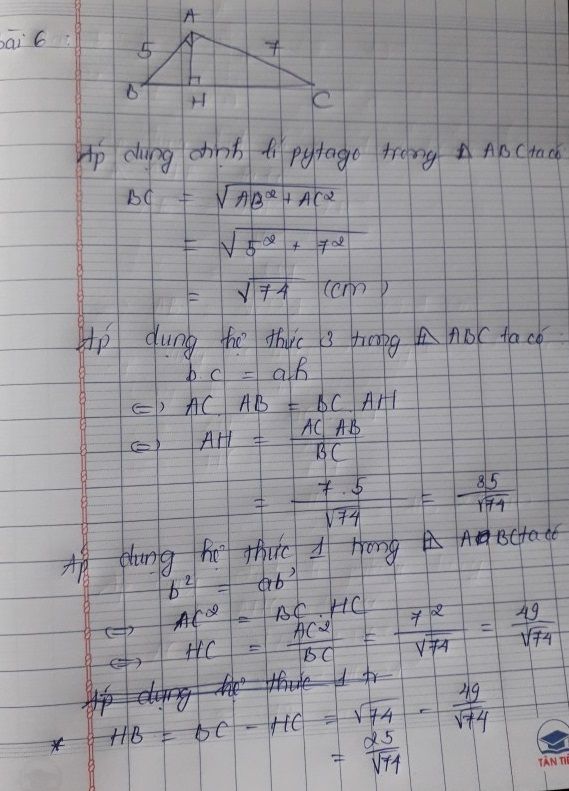 bài 6 :
A
5 7
B H C
Áp dụng định lí pytago trong Δ ABC ta có
BC = √AB² + AC²
= √5² + 7²
= √74 (cm)
Áp dụng hệ thức 3 trong Δ ABC ta có :
b c = ah
⇔ AC . AB = BC . AH
⇔ AH = AC . AB / BC
= 7 . 5 / √74 = 35 / √74
Áp dụng hệ thức 1 trong Δ ABC ta có
b² = ab'
⇔ AC² = BC . HC
⇔ HC = AC² / BC = 7² / √74 = 49 / √74
Áp dụng hệ thức 1 tr
* HB = BC - HC = √74 - 49 / √74
= 25 / √74
TÂN TI